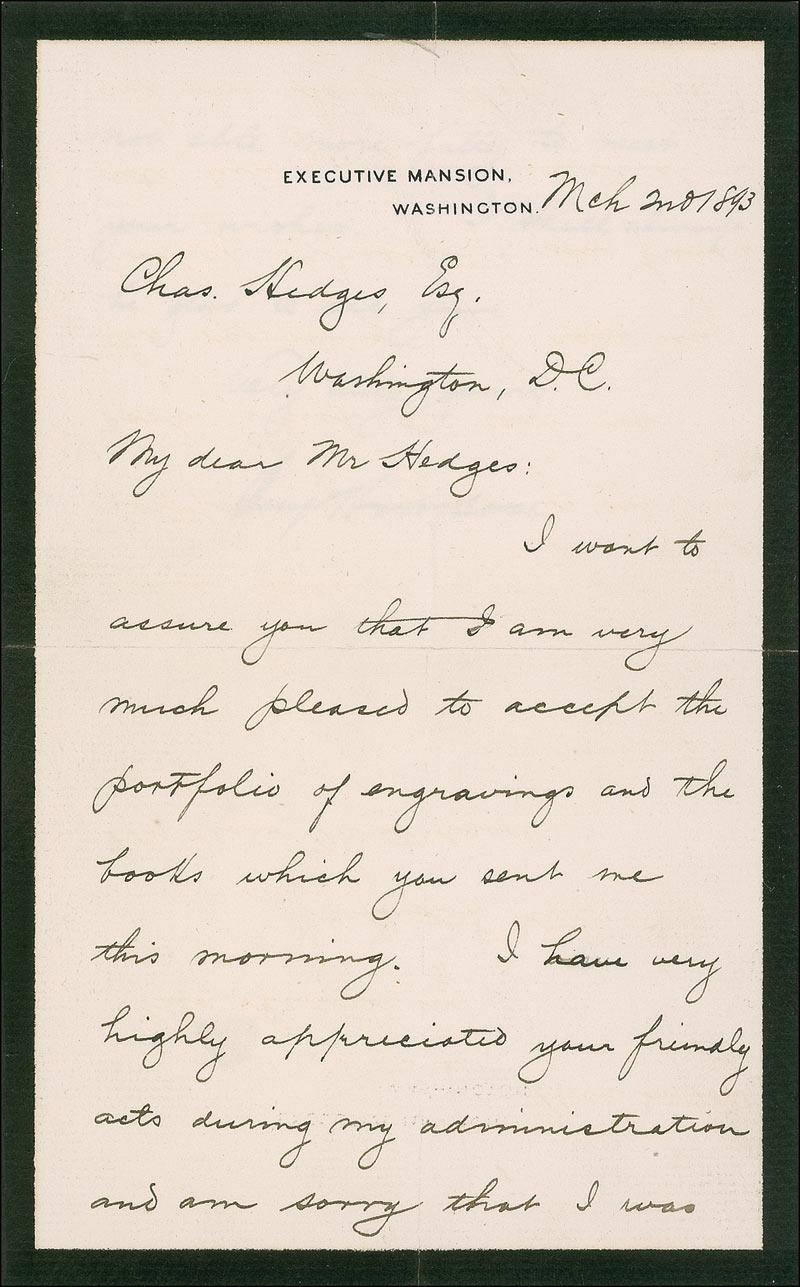 EXECUTIVE MANSION,
WASHINGTON. Mch 2nd 1893
Chas. Hedges, Esq.
Washington, D.C.
My dear Mr Hedges:
I want to
assure you that I am very
much pleased to accept the
portfolio of engravings and the
books which you sent me
this morning. I have very
highly appreciated your friendly
acts during my administration
and am sorry that I was